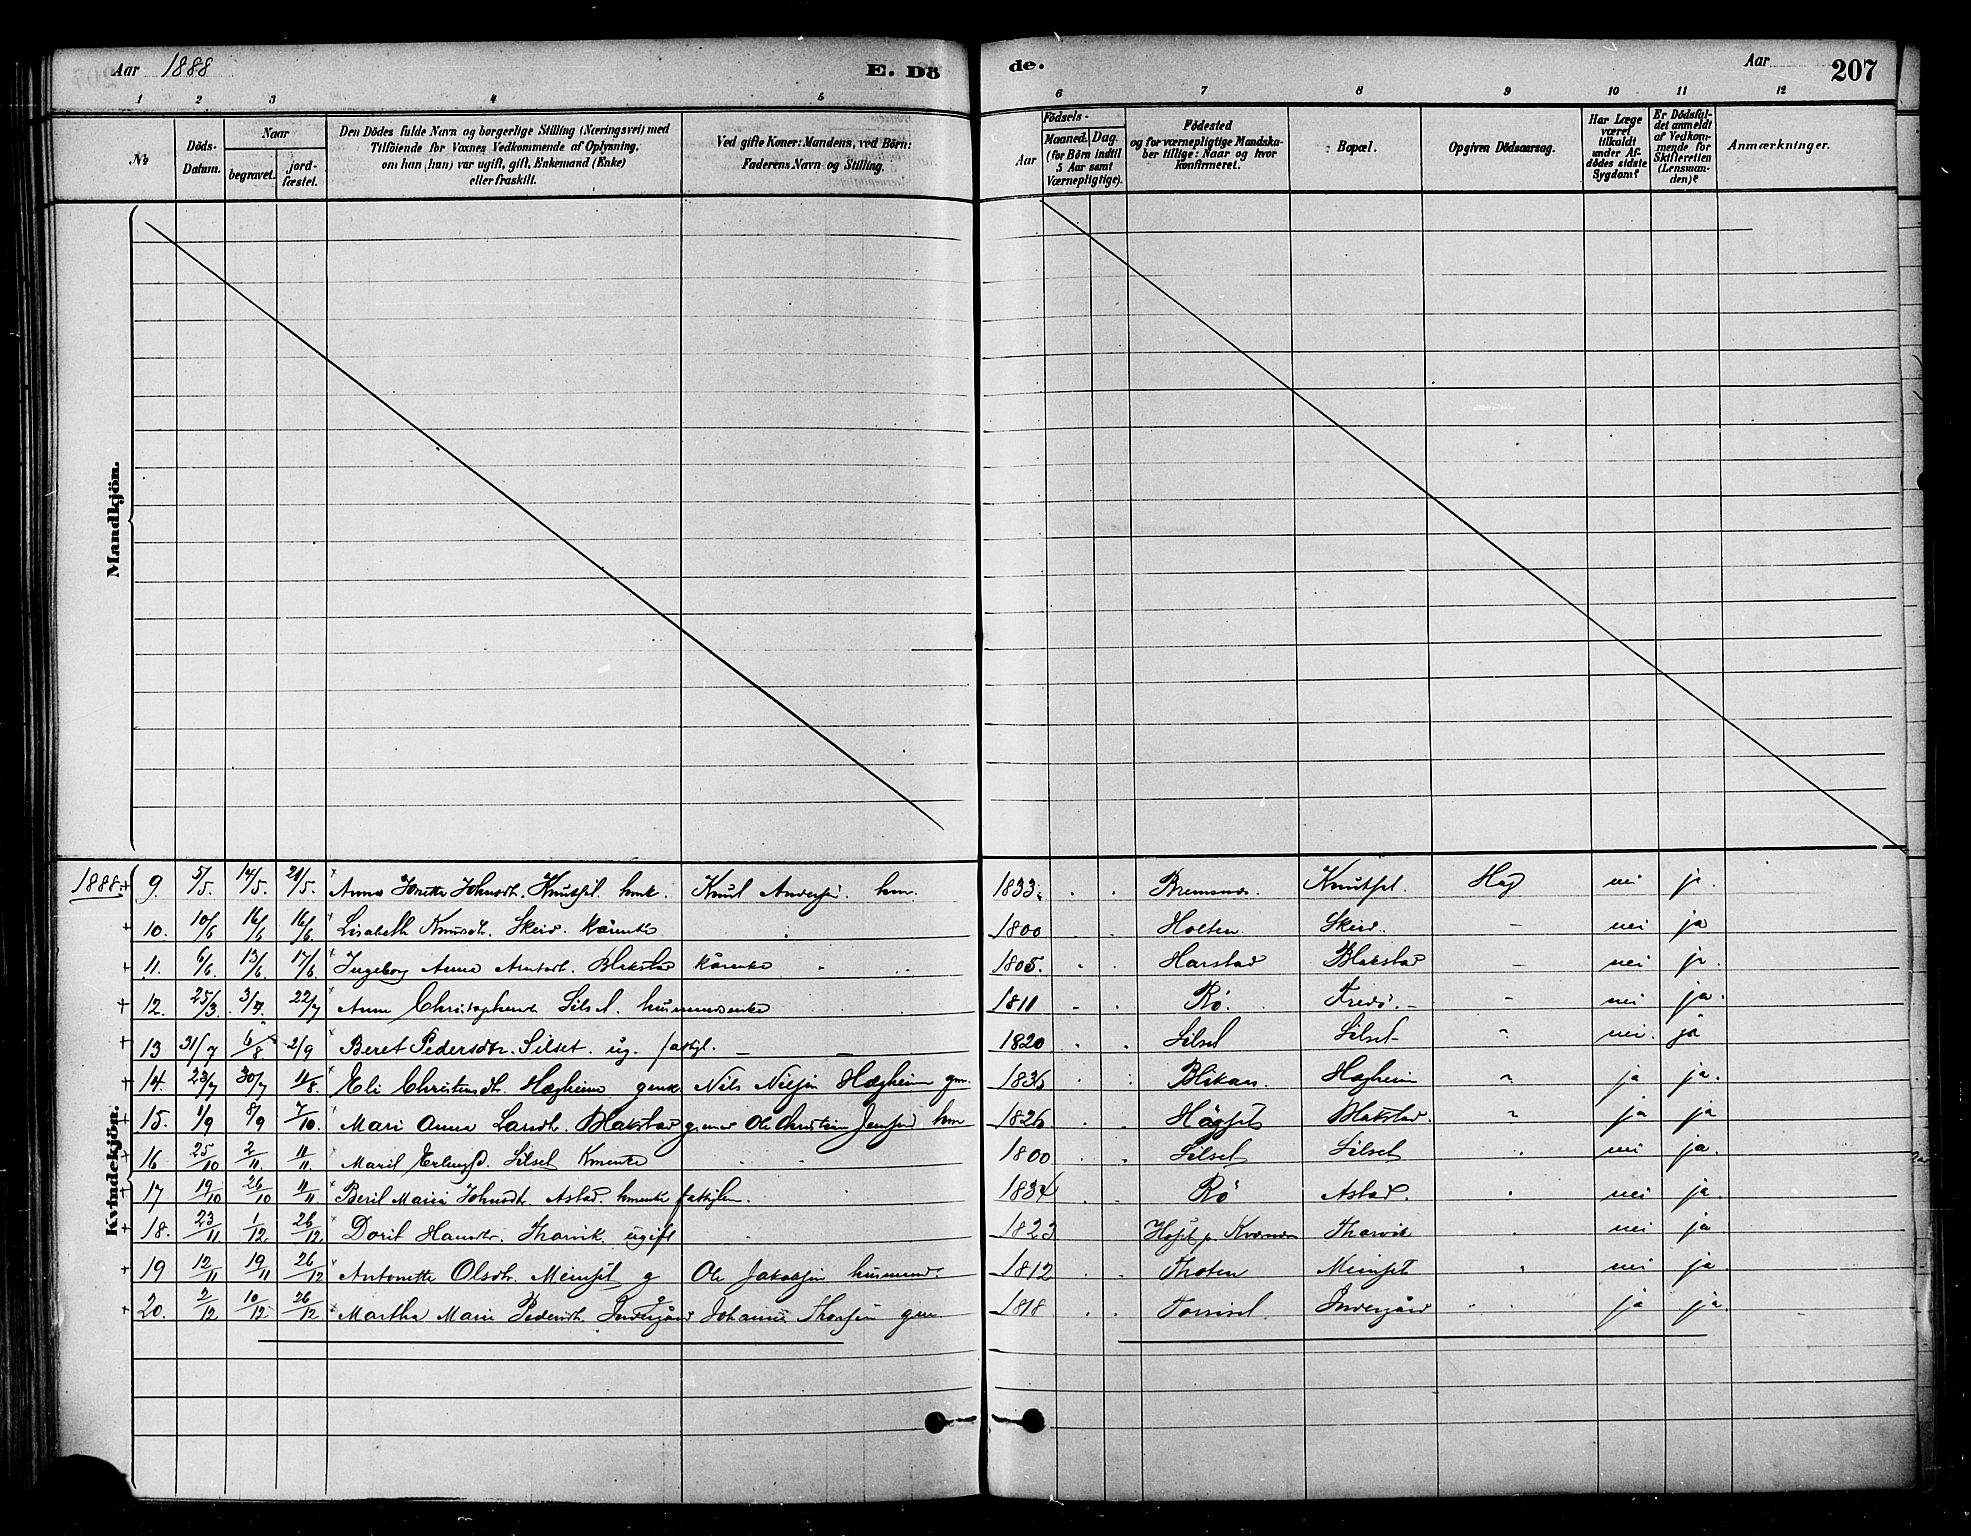 Aar 1888 E. Dö de. Aar 207
1 2 3 4 5 6 7 8 9 10 11 12
No
Döds-Datum.
Naar
begravet.
jord-fæstet.
Den Dödes fulde Navn og borgerlige Stilling (Næringsvei) med
Tilföiende for Voxnes Vedkommende af Oplysning,
om han (hun) var ugift, gift, Enkemand (Enke)
eller fraskilt.
Ved gifte Koner: Mandens, ved Börn:
Faderens Navn og Stilling.
Födsels-
Aar
Maaned. Dag.
(for Börn indtil
5 Aar samt
Værnepligtige).
Födested
og for værnepligtige Mandska-
ber tillige: Naar og hvor
konfirmeret.
Bopæl.
Opgiven Dödsaarsag.
Har Læge
været
tilkaldt
under Af-
dödes sidste
Sygdom?
Er Dödsfal-
det anmeldt
af Vedkom-
mende for
Skifteretten
(Lensman-
den)?
Anmærkninger.
Mandkjön.
Kvindekjön.
1888. + 9. 5/5. 14/5. 21/5. Anna Johnsdt. Knutset. hmk. Knut Andersen hm. 1833. Bremsnes. Knutset. nei ja.
+ 10. 10/6 16/6 16/6. Lisabeth Knudsdt. Skeid. kårenke 1800 Holten. Skeid. — nei ja
+ 11. 6/6. 13/6. 17/6 Ingeborg Anna Blakstad kårenke 1805. Harstad Blakstad — nei ja.
+ 12. 25/3. 22/7 Anne Silset. husmandsenke 1811 Rö. Fredö. — nei ja.
+ 13 31/7 6/8 2/9 Beret Pedersdtr. Silset. ug. fattigl. — — 1820 Silset Silset " nei. ja
+ 14. 23/7 30/7 11/8. Eli Christensdt. Hægheim gmk. Nils Nilsen Hægheim gm. Hægheim " ja ja.
+ 15. 1/9 8/9 7/10. Mari Anna Larsdt. Blakstad Ole Christian Jensen hm 1826 Högset Blakstad. " ja ja
+ 16 25/10 2/11. 11/11. Marit Silset 1800 Silset Silset nei ja.
+ 17 19/10 26/10 11/11. Berit Maria Johnsdt. Astad. hmenke fattiglem. 1834 Rö Astad. nei ja.
+ 18. 23/11 1/12 26/12 Dorit Hansdtr. Thorvik. ugift 1823 Thorvik nei ja.
+ 19 12/11 19/11 26/12 Antonette Olsdt. Meinset g Ole Jakobsen husmand. 1812 Meinset nei ja.
+ 20. 2/12 10/12 26/12 Martha Marie Pedersdt. Indergård Johannes gm. 1818 Torvisel Indergård " ja ja.